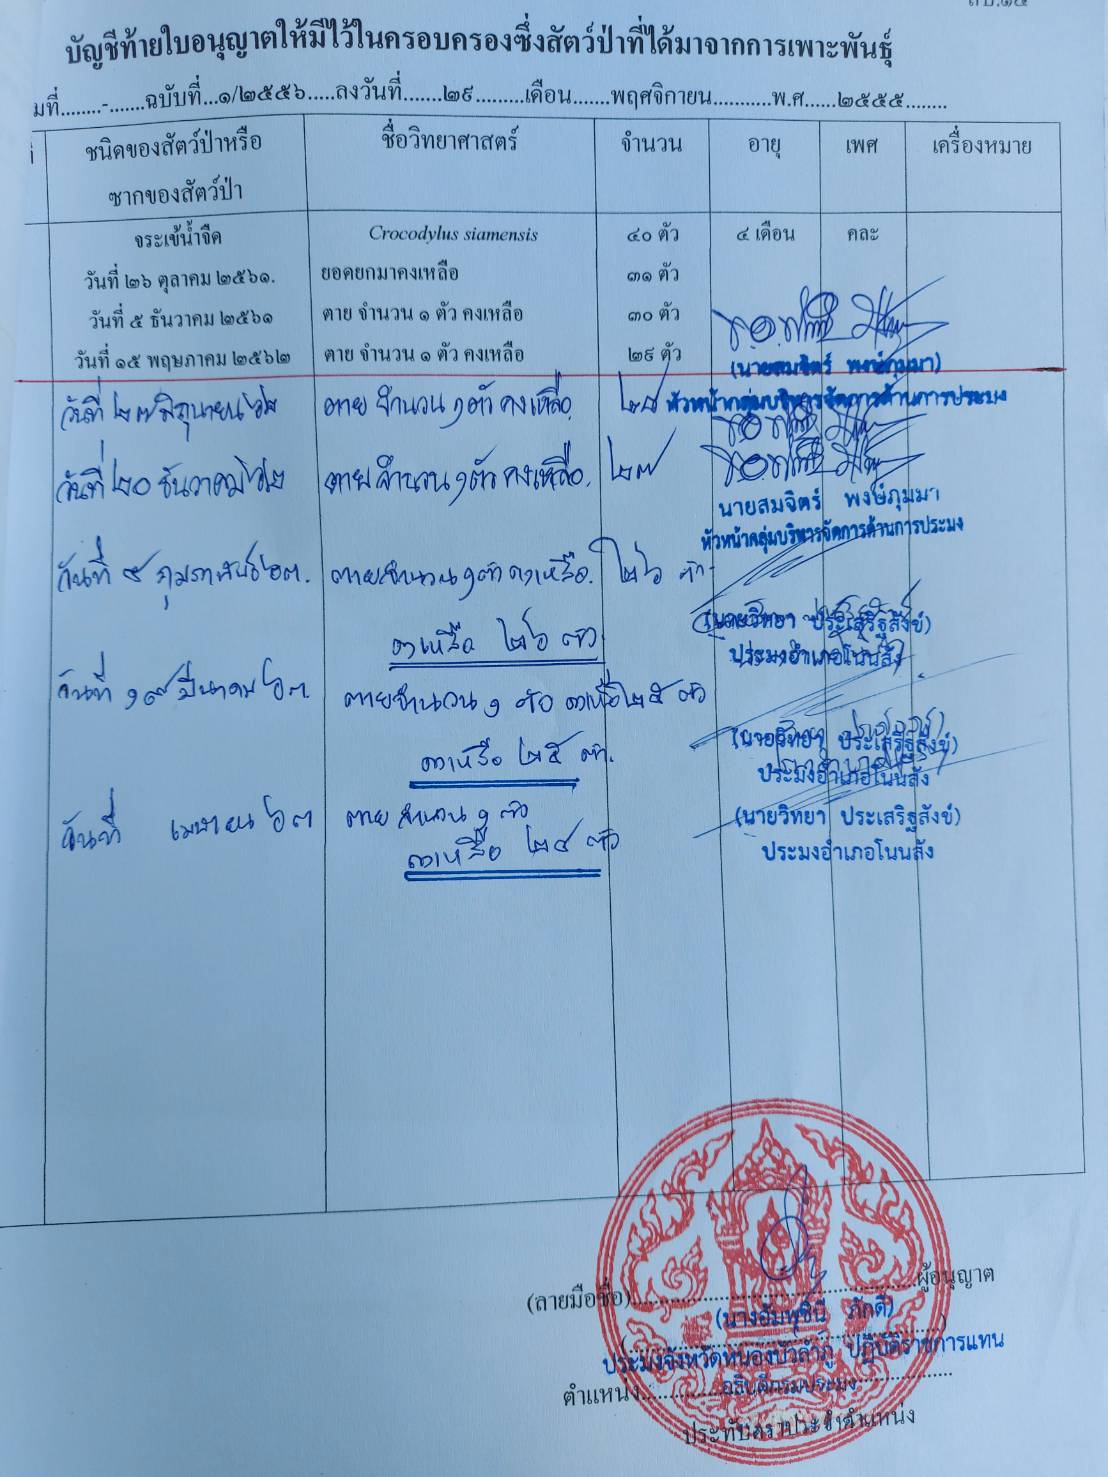 บัญชีท้ายใบอนุญาตให้มีไว้ในครอบครองซึ่งสัตว์ป่าที่ได้มาจากการเพาะพันธุ์
มที่........-.......ฉบับที่...๑/๒๕๕๖.....ลงวันที่.......๒๙.........เดือน.......พฤศจิกายน...........พ.ศ......๒๕๕๕........
ชนิดของสัตว์ป่าหรือซากของสัตว์ป่า ชื่อวิทยาศาสตร์ จำนวน อายุ เพศ เครื่องหมาย
จระเข้น้ำจืด Crocodylus siamensis ๔๐ ตัว ๔ เดือน คละ
วันที่ ๒๖ ตุลาคม ๒๕๖๑. ยอดยกมาคงเหลือ ๓๑ ตัว
วันที่ ๕ ธันวาคม ๒๕๖๑ ตาย จำนวน ๑ ตัว คงเหลือ ๓๐ ตัว
วันที่ ๑๕ พฤษภาคม ๒๕๖๒ ตาย จำนวน ๑ ตัว คงเหลือ ๒๙ ตัว
(นายสมจิตร์ พงษ์ภุมมา)
หัวหน้ากลุ่มบริหารจัดการด้านการประมง
วันที่ ๒๗ มิถุนายน ๖๒ ตาย จำนวน ๑ ตัว คงเหลือ. ๒๘
วันที่ ๒๐ ธันวาคม ๖๒ ตาย จำนวน ๑ ตัว คงเหลือ. ๒๗
นายสมจิตร์ พงษ์ภุมมา
หัวหน้ากลุ่มบริหารจัดการด้านการประมง
วันที่ ๕ กุมภาพันธ์ ๖๓. ตายจำนวน ๑ ตัว คงเหลือ. ๒๖ ตัว
คงเหลือ ๒๖ ตัว
(นายวิทยา ประเสริฐสังข์)
ประมงอำเภอโนนสัง
วันที่ ๑๙ มีนาคม ๖๓ ตายจำนวน ๑ ตัว คงเหลือ ๒๕ ตัว
คงเหลือ ๒๕ ตัว.
(นายวิทยา ประเสริฐสังข์)
ประมงอำเภอโนนสัง
วันที่ เมษายน ๖๓ ตาย จำนวน ๑ ตัว
คงเหลือ ๒๔ ตัว
(นายวิทยา ประเสริฐสังข์)
ประมงอำเภอโนนสัง
(ลายมือชื่อ)..................................................ผู้อนุญาต
(นางอัมพุชินี ภักดี)
ประมงจังหวัดหนองบัวลำภู ปฏิบัติราชการแทน
ตำแหน่ง..............อธิบดีกรมประมง..................
ประทับตราประจำตำแหน่ง